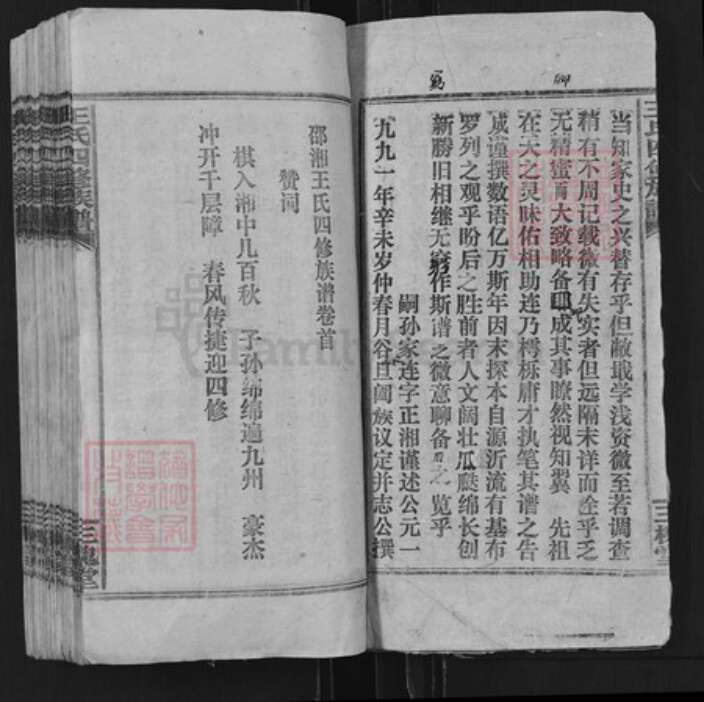 王氏四修族谱
当知家史之兴替存乎但敝戢学浅资微至若调查
稍有不周记载微有失实者但远隔未详而全乎乏
无精蜜而大致略备即成其事瞭然视知翼 先祖
在天之灵昧佑相助连乃樗栎庸才执笔其谱之告
成谨撰数语亿万斯年因末探本自源沂流有基布
罗列之观乎盼后之胜前者人文阔壮瓜瓞绵长创
新勝旧相继无穷作斯谱之微意聊备后之览乎
嗣孙家连字正湘谨述公元一
九九一年辛未岁仲春月谷旦阖族议定并志公撰
三槐堂
邵湘王氏四修族谱卷首
赞词
棋入湘中几百秋 子孙绵绵遍九州 豪杰
冲开千层障 春风传捷迎四修
王氏四修族谱
三槐堂